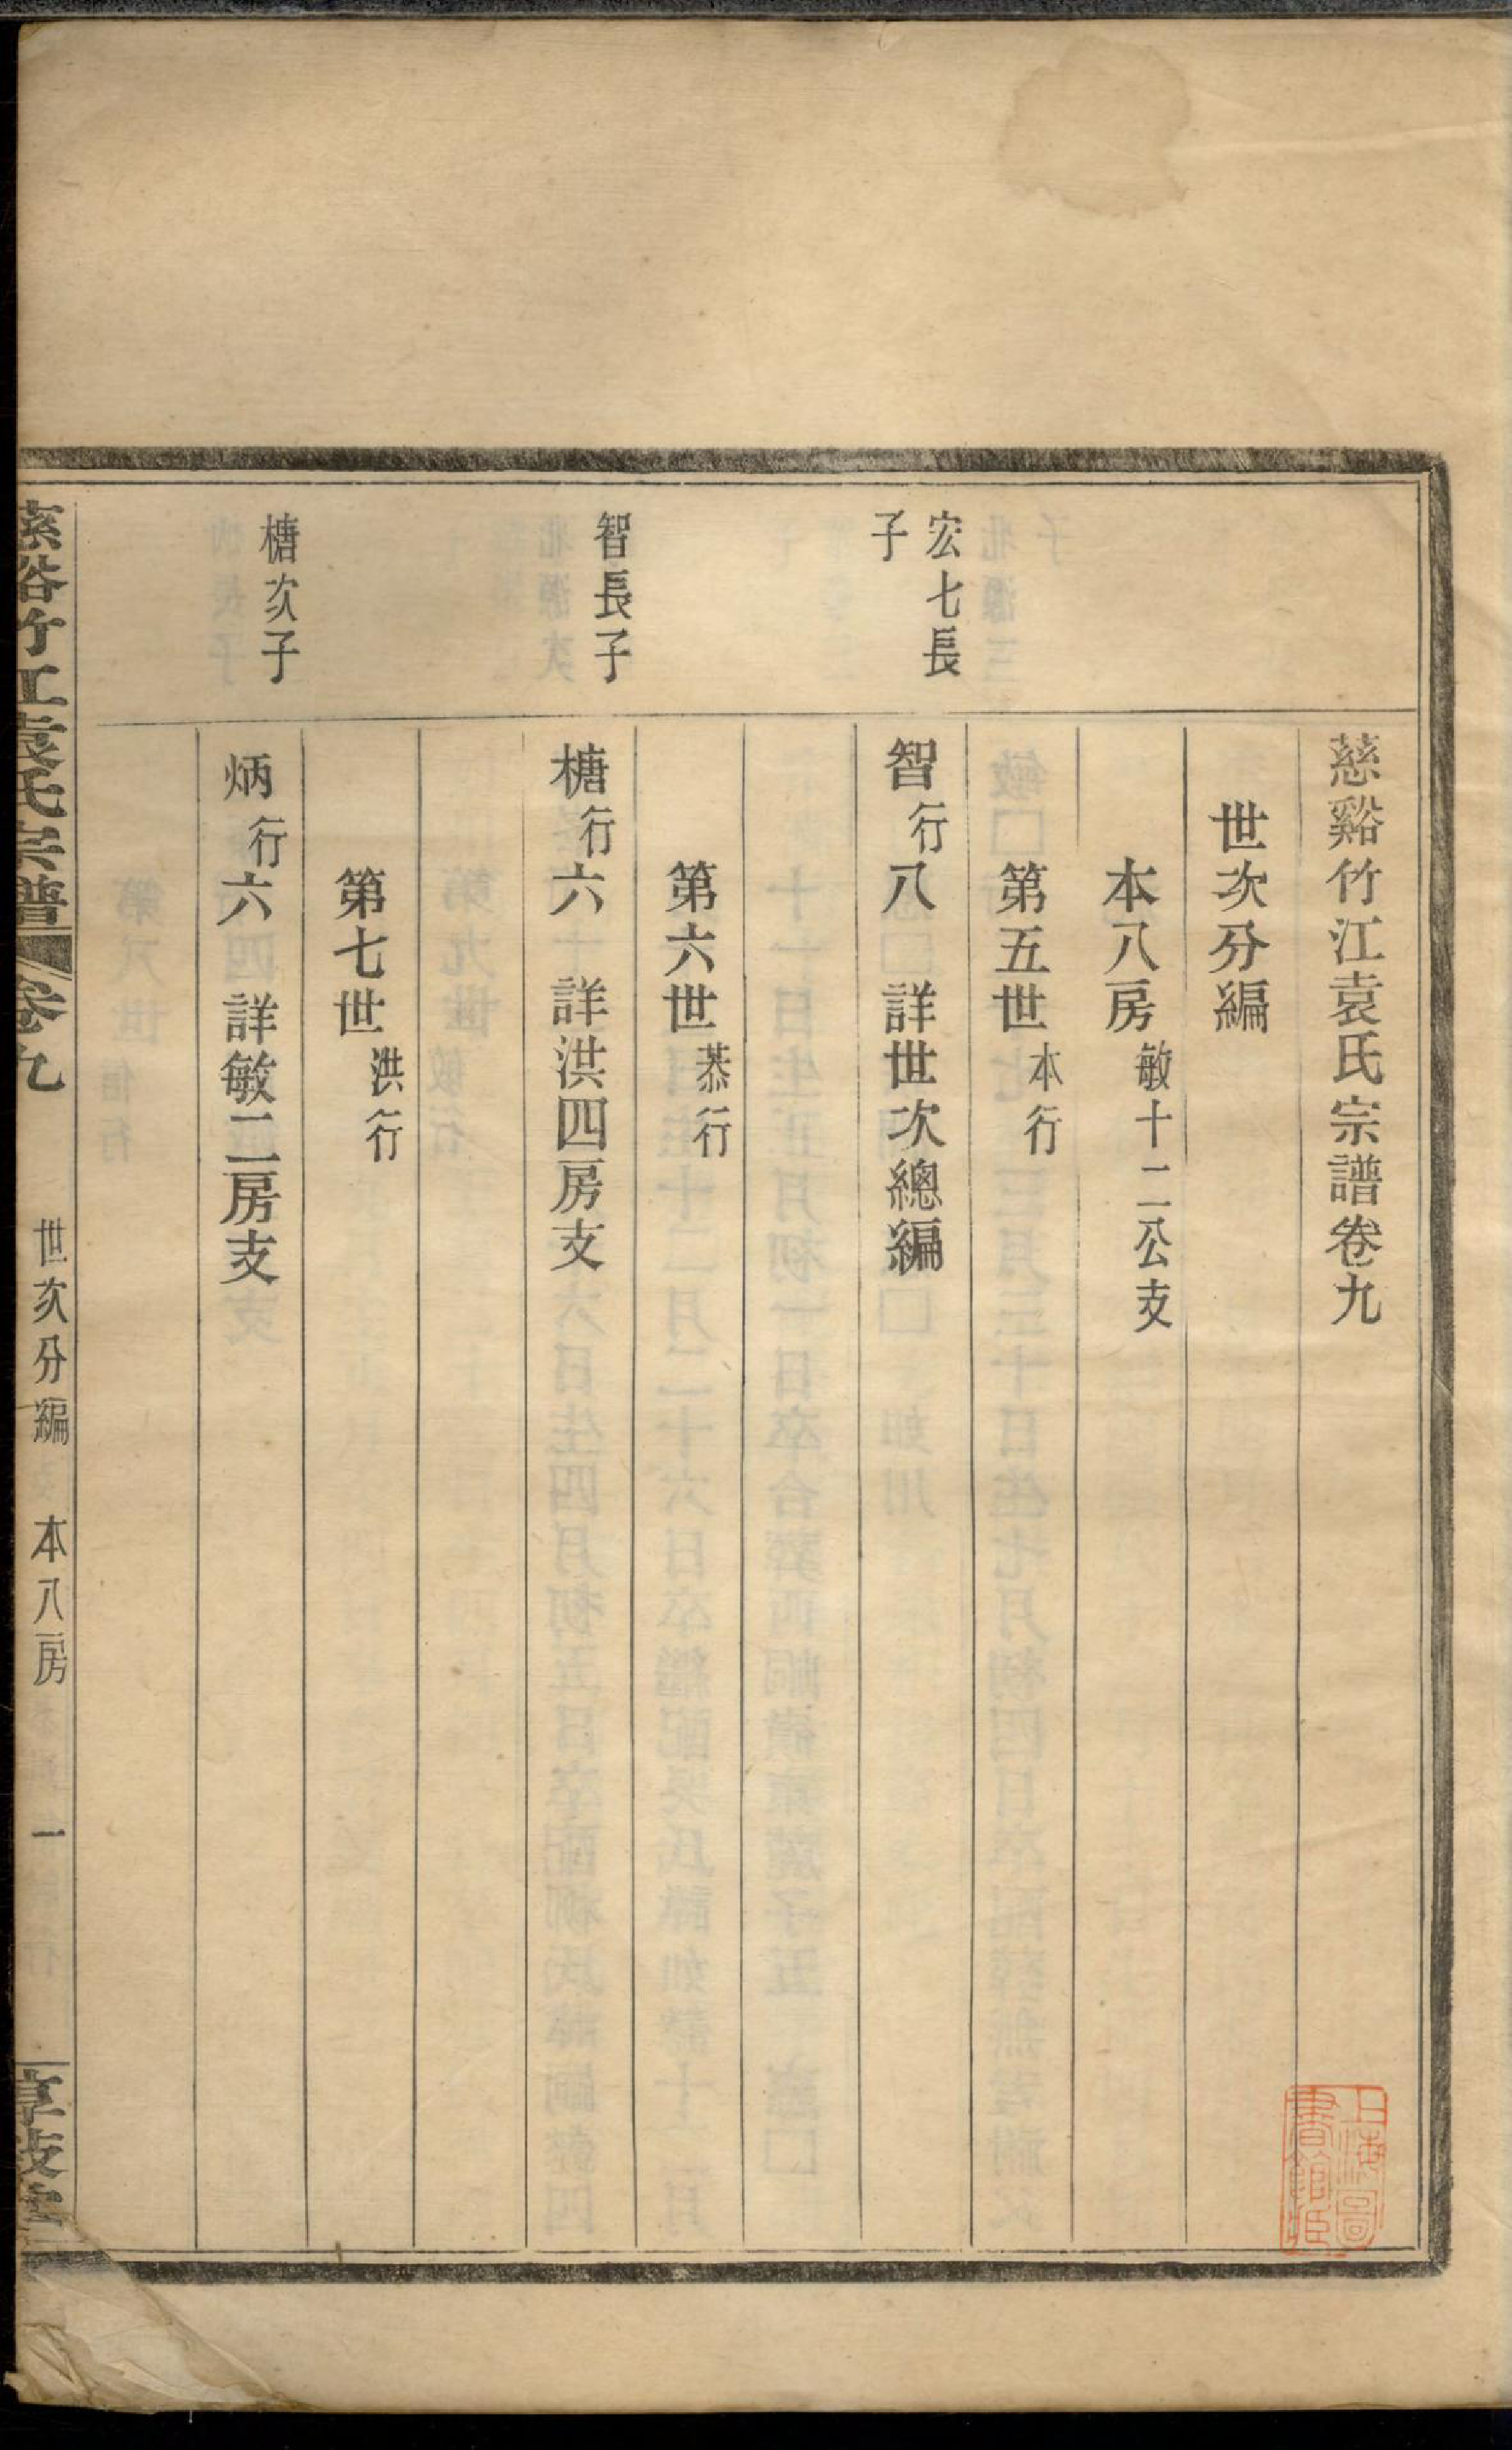 慈谿竹江袁氏宗譜卷九
世次分編
本八房敏十二公支
第五世本行
宏七長
子
智行八 詳世次總編
第六世恭行
智長子
榶行六 詳洪四房支
第七世洪行
榶次子
炳行六 詳敏二房支
慈谿竹江袁氏宗譜 卷九 世次分編 本八房 一
上海圖書館藏